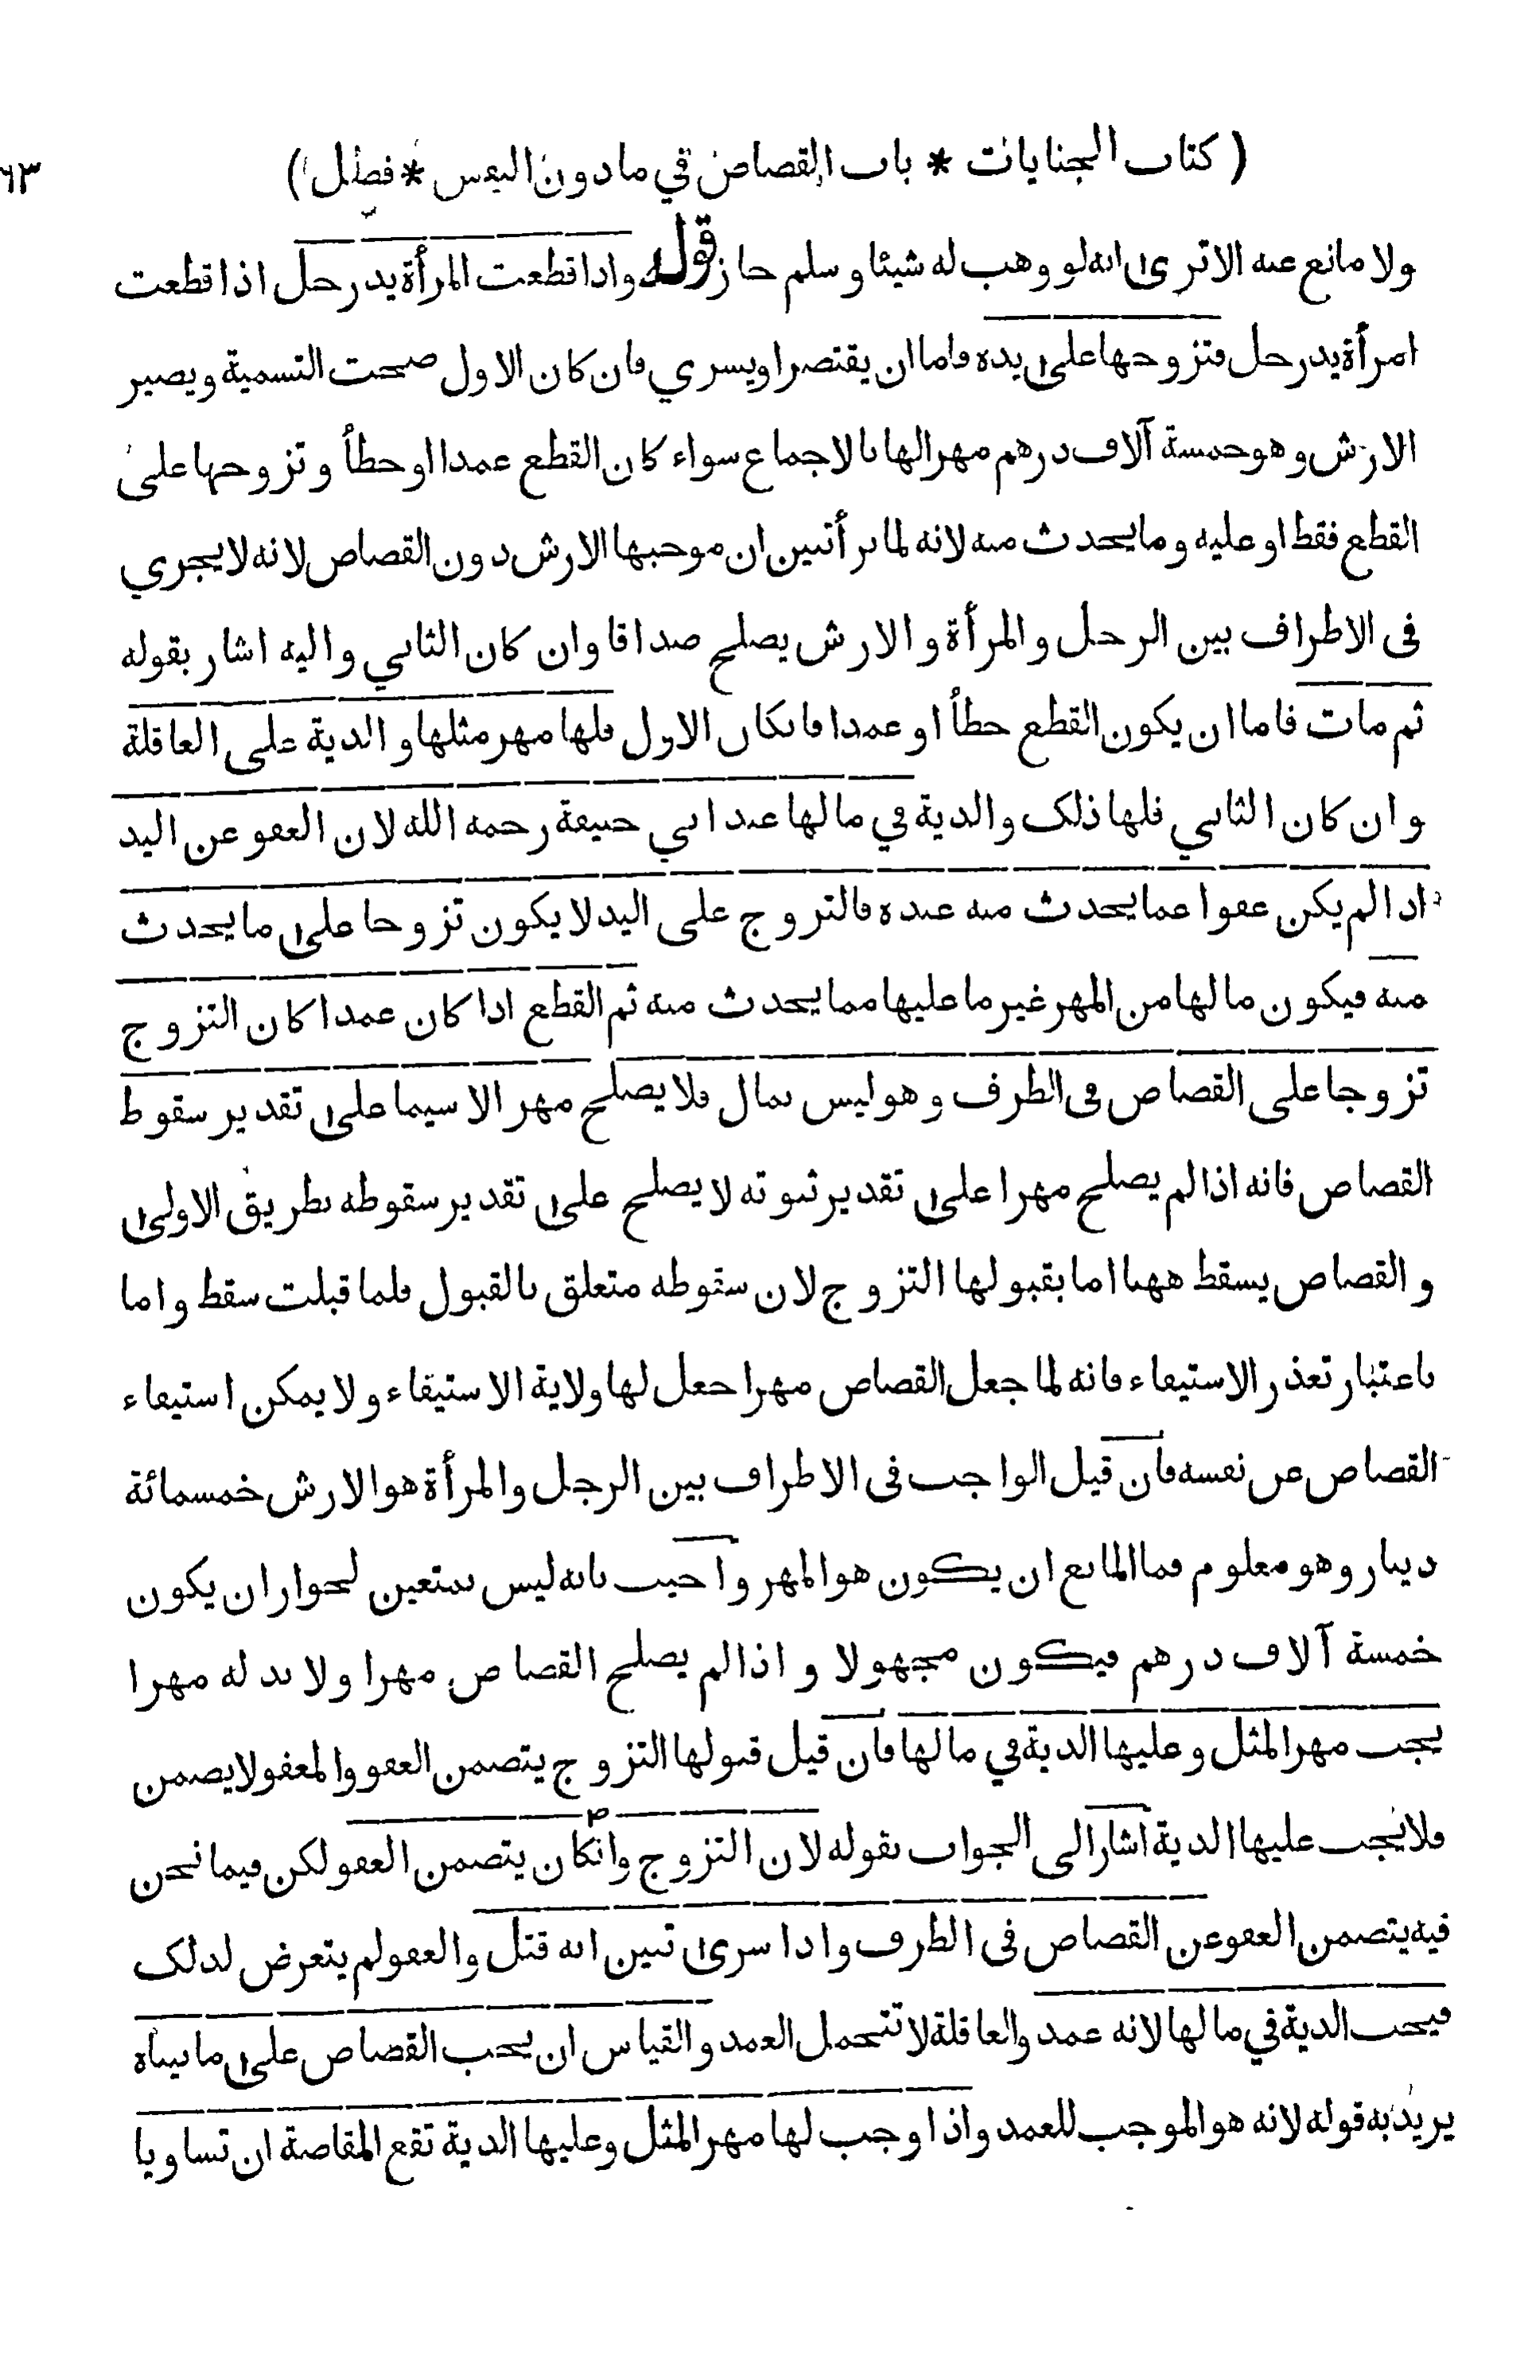 ( كتاب الجنايات * باب القصاص في ما دون النفس * فصل ) ٦٣
ولا مانع عنه الا ترى انه لو وهب له شيئا وسلم جاز قوله واذا قطعت المرأة يد رجل اذا قطعت
امرأة يد رجل فتزوجها على يده فاما ان يقتصر او يسري فان كان الاول صحت التسمية ويصير
الارش وهو خمسة آلاف درهم مهرا لها بالاجماع سواء كان القطع عمدا او خطأ وتزوجها على
القطع فقط او عليه وما يحدث منه لانه لما برأ تبين ان موجبها الارش دون القصاص لانه لا يجري
فى الاطراف بين الرجل والمرأة والارش يصلح صداقا وان كان الثاني واليه اشار بقوله
ثم مات فاما ان يكون القطع خطأ او عمدا فانكان الاول فلها مهر مثلها والدية على العاقلة
وان كان الثاني فلها ذلك والدية في مالها عند ابي حنيفة رحمه الله لان العفو عن اليد
اذا لم يكن عفوا عما يحدث منه عنده فالتزوج على اليد لا يكون تزوجا على ما يحدث
منه فيكون ما لها من المهر غير ما عليها مما يحدث منه ثم القطع اذا كان عمدا كان التزوج
تزوجا على القصاص فى الطرف وهو ليس بمال فلا يصلح مهرا لا سيما على تقدير سقوط
القصاص فانه اذا لم يصلح مهرا على تقدير ثبوته لا يصلح على تقدير سقوطه بطريق الاولى
والقصاص يسقط ههنا اما بقبولها التزوج لان سقوطه متعلق بالقبول فلما قبلت سقط واما
باعتبار تعذر الاستيفاء فانه لما جعل القصاص مهرا جعل لها ولاية الاستيفاء ولا يمكن استيفاء
القصاص عن نفسه فان قيل الواجب فى الاطراف بين الرجل والمرأة هو الارش خمسمائة
دينار وهو معلوم فما المانع ان يكون هو المهر واجيب بانه ليس بمتعين لجواز ان يكون
خمسة آلاف درهم فيكون مجهولا واذا لم يصلح القصاص مهرا ولا بدله مهرا
يجب مهر المثل وعليها الدية في مالها فان قيل قبولها التزوج يتضمن العفو والمعفو لا يضمن
فلا يجب عليها الدية اشار الى الجواب بقوله لان التزوج وانكان يتضمن العفو لكن فيما نحن
فيه يتضمن العفو عن القصاص فى الطرف واذا سرى تبين انه قتل والعفو لم يتعرض لذلك
فيجب الدية في مالها لانه عمد والعاقلة لا تتحمل العمد والقياس ان يجب القصاص على ما بيناه
يريد به قوله لانه هو الموجب للعمد واذا وجب لها مهر المثل وعليها الدية تقع المقاصة ان تساويا